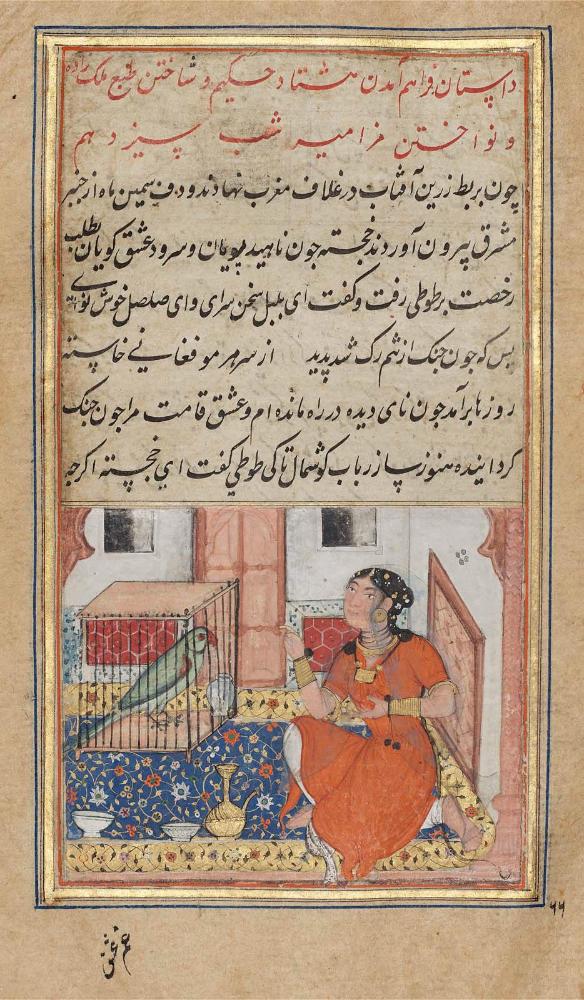 داستان فراهم آمدن هشتاد حکیم و ساختن طبع ملک زاده
و نواختن مزامیر شب سیزدهم
چون بربط زرین آفتاب در غلاف مغرب نهادند و دف سیمین ماه از چنبر
مشرق بیرون آوردند خجسته چون ناهید پویان و سرود عشق کویان بطلب
رخصت بر طوطی رفت و کفت ای بلبل سخن سرای و ای صلصل خوش نوای
بس که چون جنک از تنم رک شد پدید از سر هر مو فغانی خاسته
روزها برآمد چون نای دیده در راه مانده ام و عشق قامت مرا چون جنک
کردانیده هنوز ساز رباب کوشمال تا کی طوطی کفت ای خجسته اکرچه
۶۶